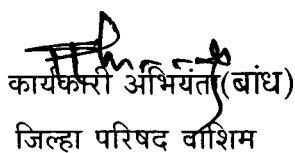 कार्यकारी अभियंता (बांध)
जिल्हा परिषद वाशिम